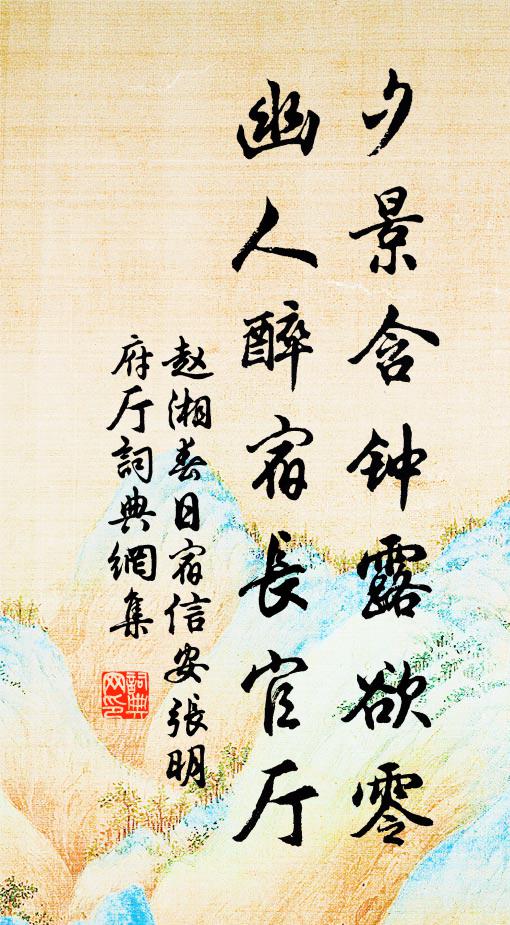 夕景含钟露欲零
幽人醉宿長官厅
赵湘春日宿信安張明
府厅詞典網集
詞典
网印